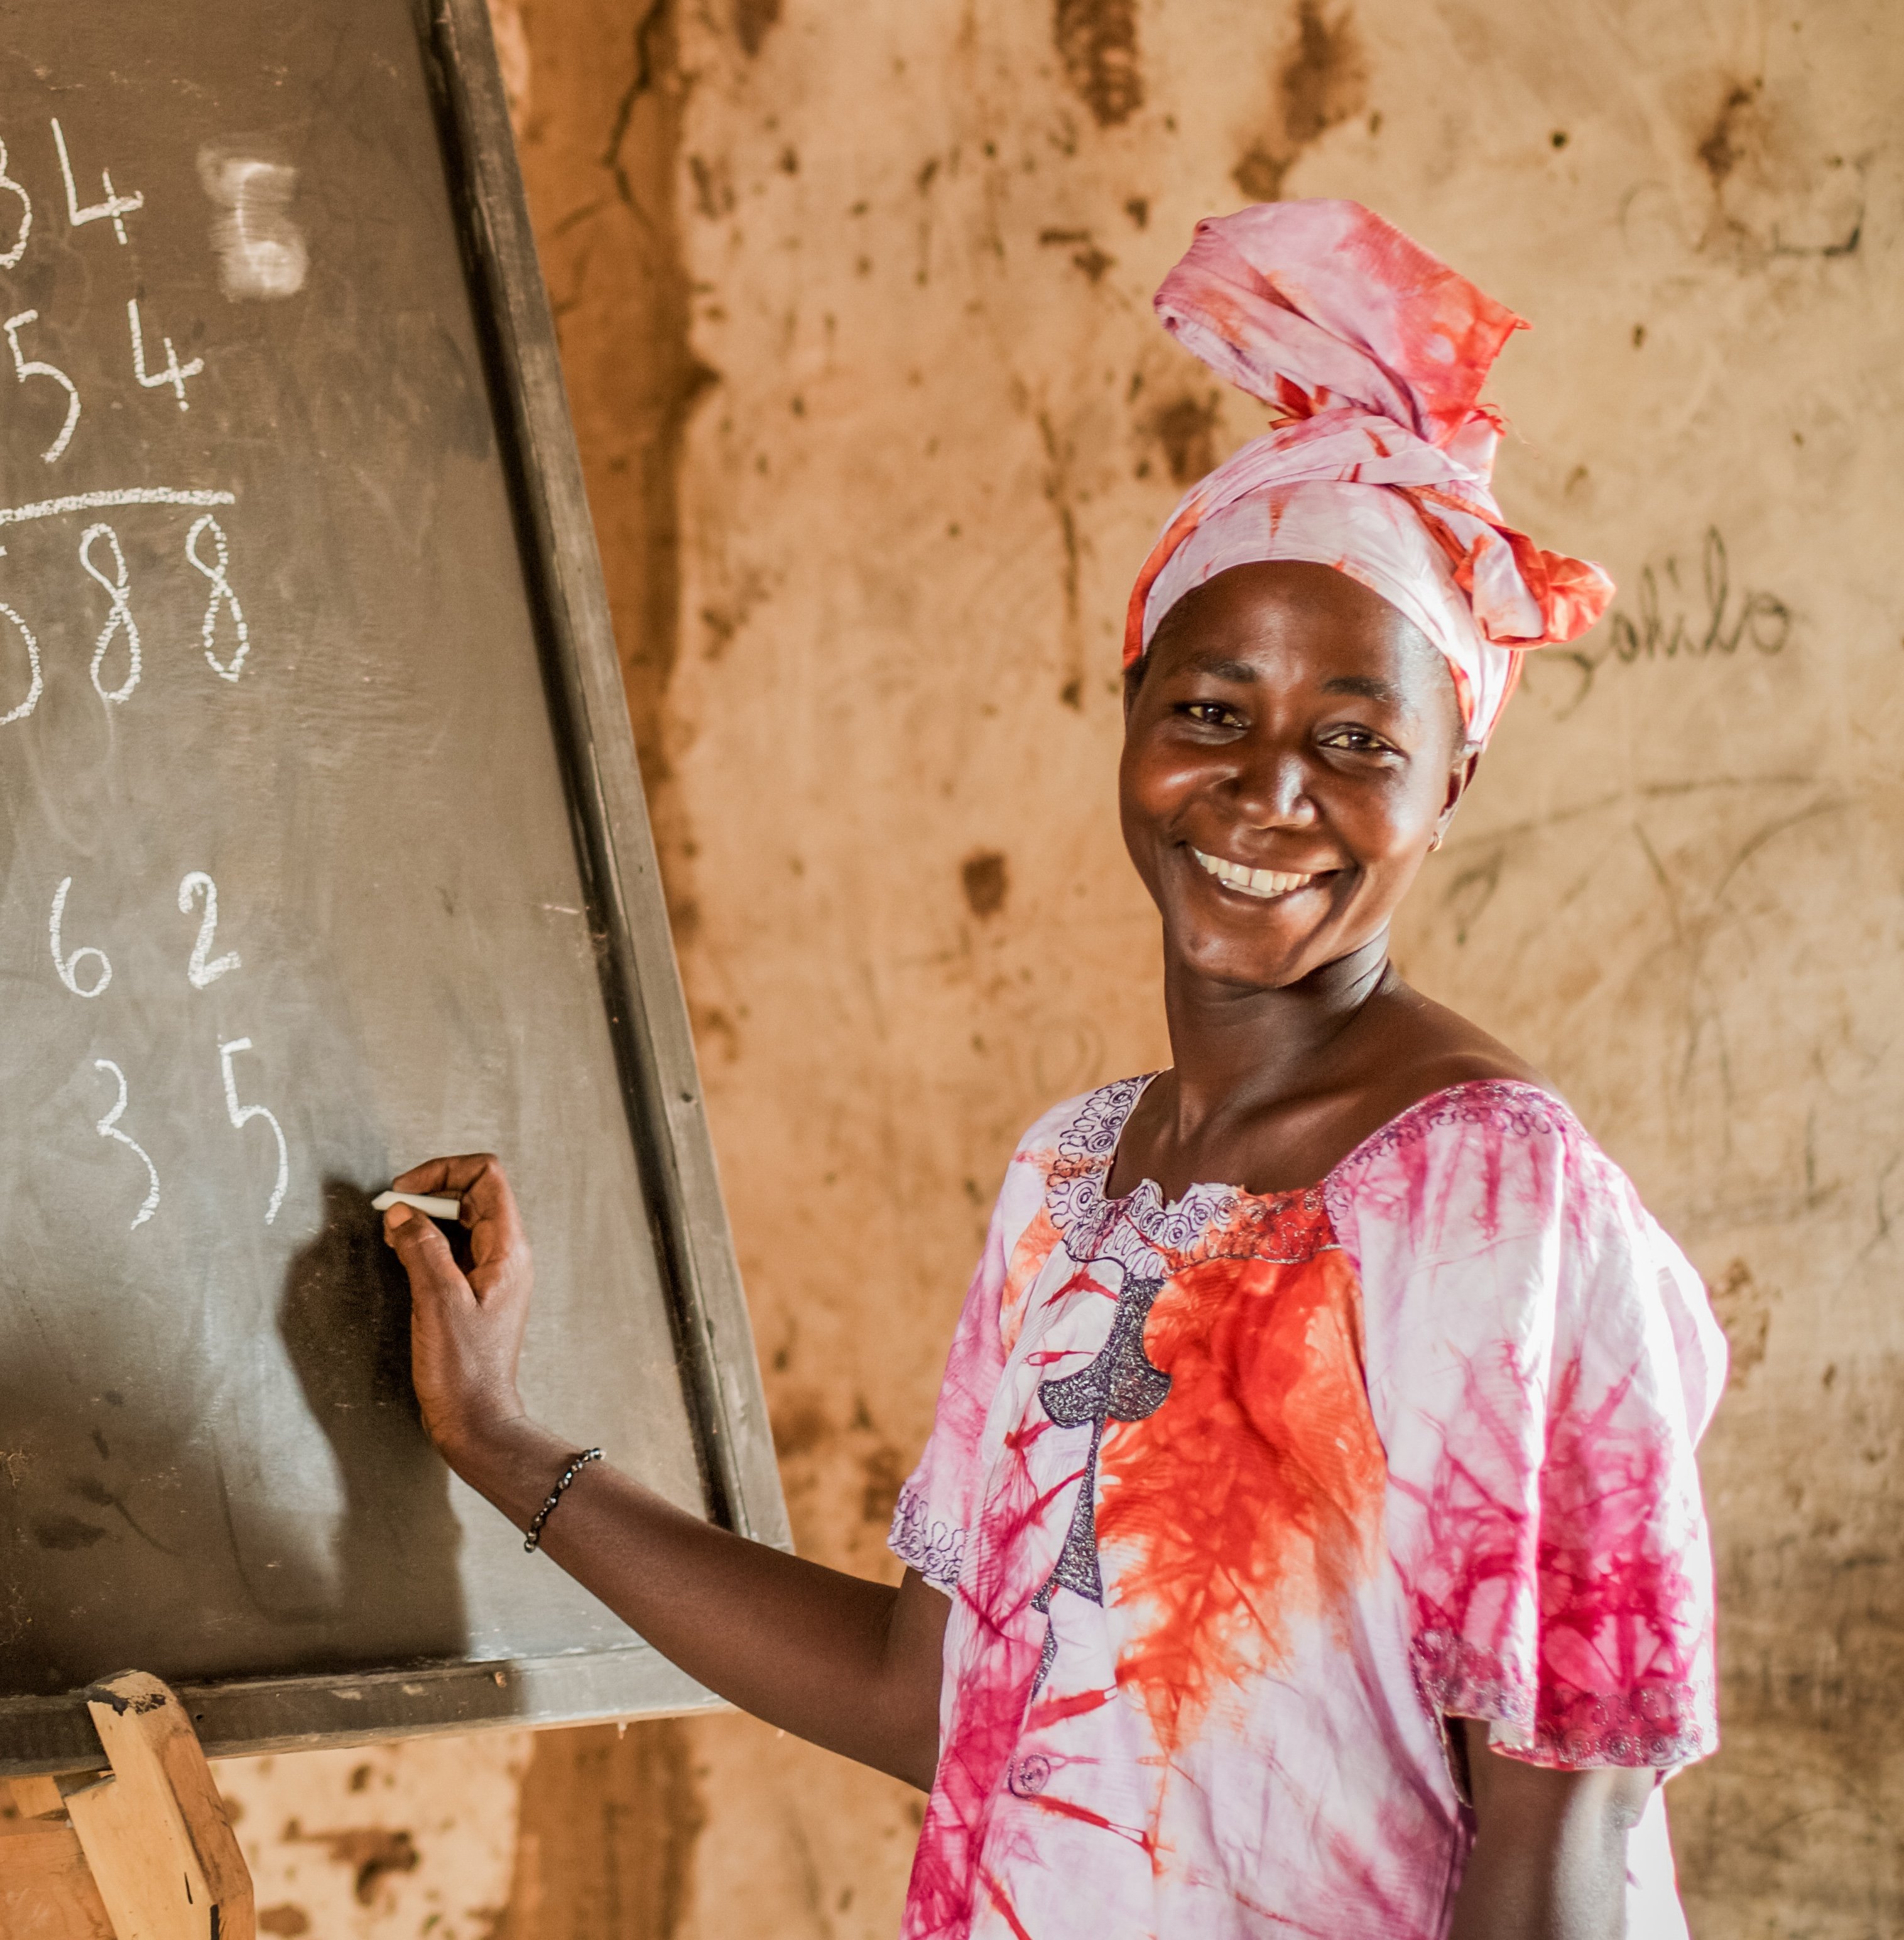 34
54
588
62
35